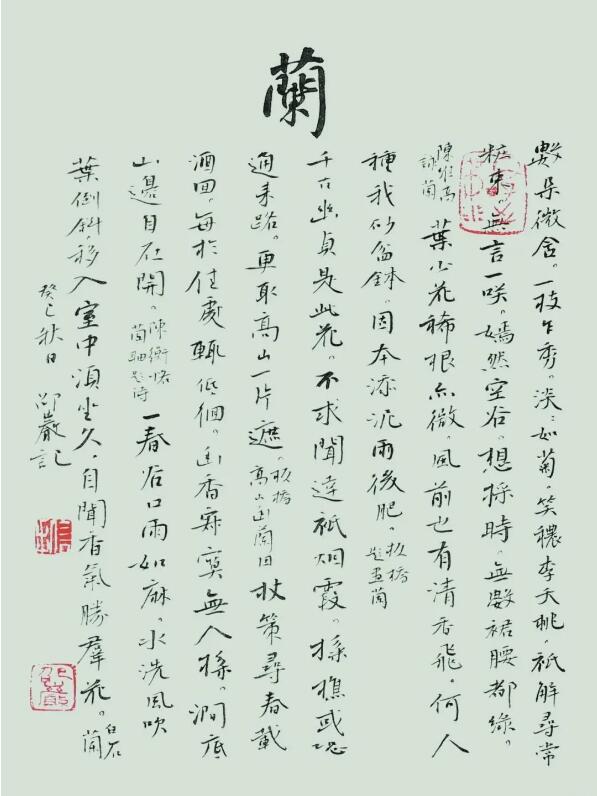 蘭
數朵微含。一枝乍秀。淡〻如菊。笑穠李夭桃。祇解尋常
粧束。無言一咲。嫣然空谷。想採時。無數裙腰都綠。
葉少花稀根亦微。風前也有清香飛。何人
種我砂盆鉢。因本添泥雨後肥。板橋題畫蘭
千古幽貞是此花。不求聞達祇烟霞。採樵或恐
通來路。更取高山一片遮。板橋高山幽蘭圖 杖策尋春載
酒回。每於佳處輒低徊。幽香寂寞無人採。澗底
山邊自在開。陳衡恪蘭軸題詩 一春谷口雨如麻。水洗風吹
葉倒斜。移入室中須坐久。自聞香氣勝羣花。白石蘭
癸巳秋日 邵巖記